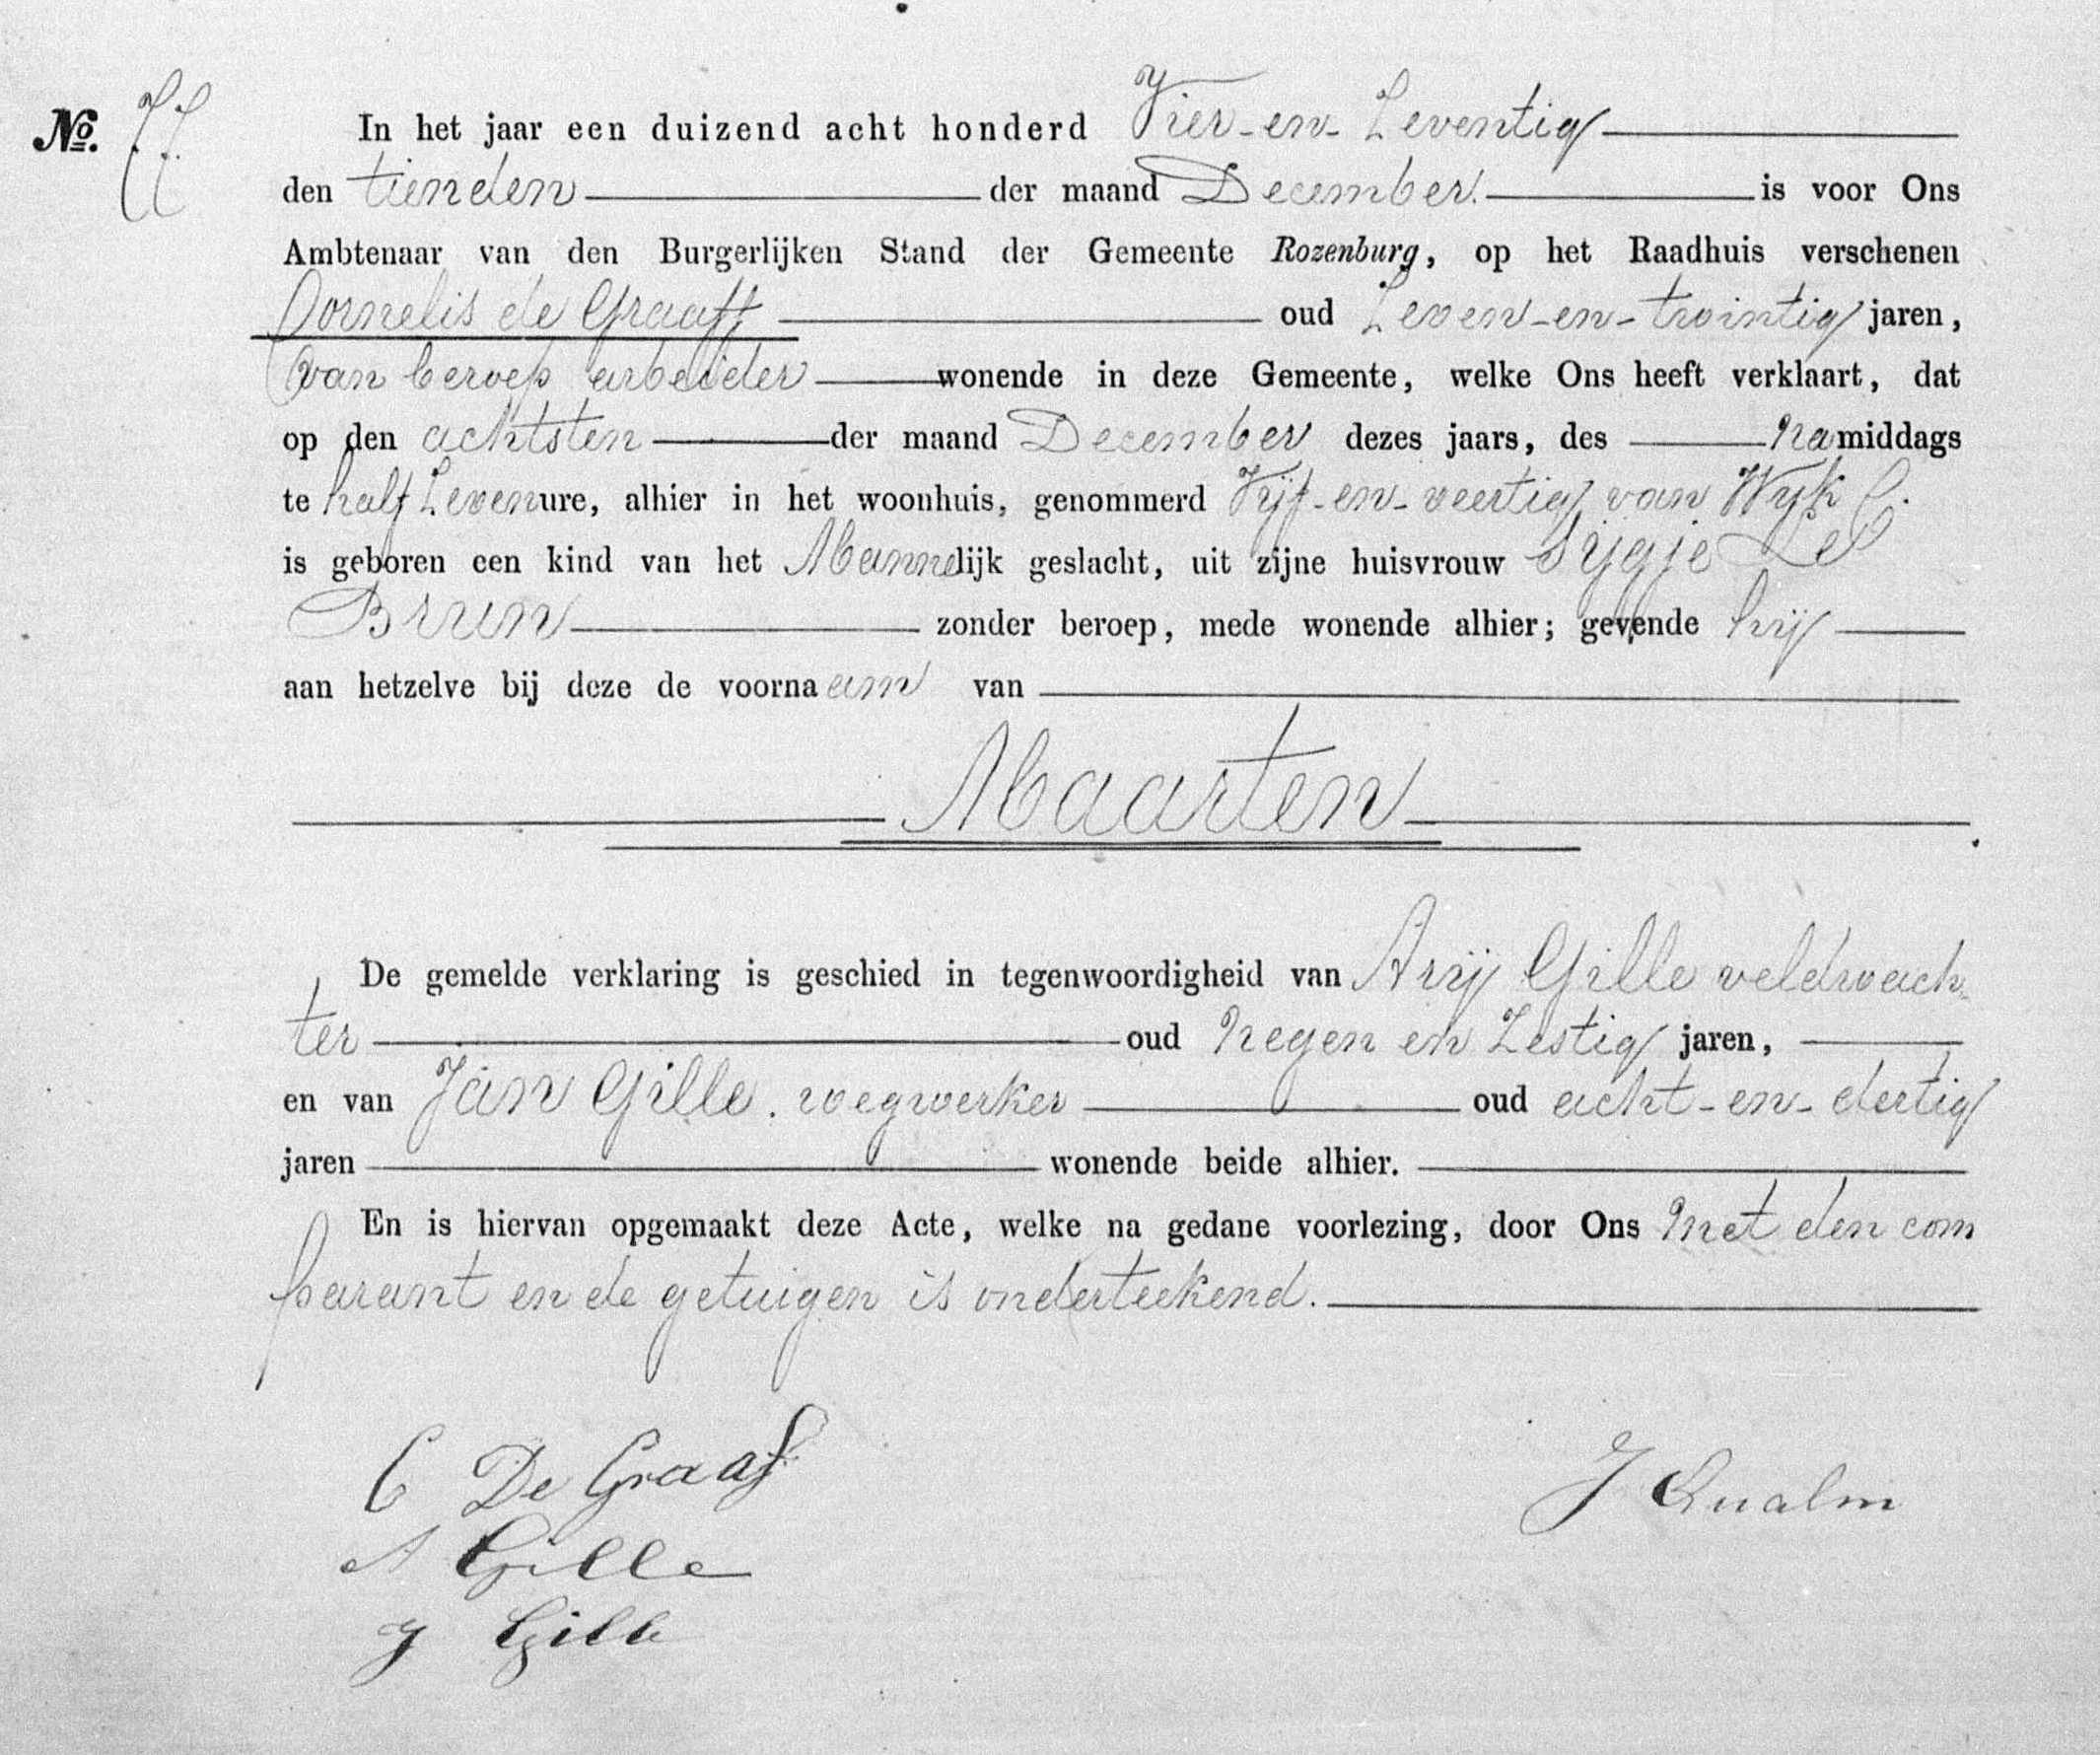 No. 77 In het jaar een duizend acht honderd Vier-en-Zeventig
den tienden der maand December. is voor Ons
Ambtenaar van den Burgerlijken Stand der Gemeente Rozenburg, op het Raadhuis verschenen
Cornelis de Graaff oud Zeven-en-twintig jaren,
van beroep arbeider wonende in deze Gemeente, welke Ons heeft verklaart, dat
op den achtsten der maand December dezes jaars, des namiddags
te half Zevenure, alhier in het woonhuis, genommerd Vijf-en-veertig van Wijk C.
is geboren een kind van het Mannelijk geslacht, uit zijne huisvrouw Sijgje Le
Brun zonder beroep, mede wonende alhier; gevende hij
aan hetzelve bij deze de voornaam van
Maarten
De gemelde verklaring is geschied in tegenwoordigheid van Arij Gille veldwach-
ter oud negen en Zestig jaren,
en van Jan Gille. wegwerker oud acht-en-dertig
jaren wonende beide alhier.
En is hiervan opgemaakt deze Acte, welke na gedane voorlezing, door Ons met den com
parant en de getuigen is onderteekend.
C De Graaf J Qualm
A Gille
J Gille